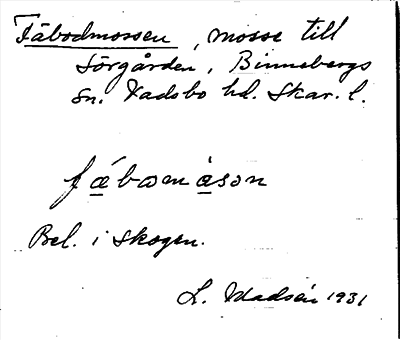 Fäbodmossen, mosse till
Sörgården, Binnebergs
sn. Vadsbo hd. Skar. l.
fábωmàsαn
Bel. i skogen.
L. Madsén 1931